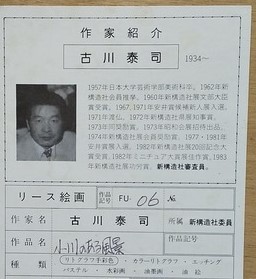 作家紹介
古川泰司 1934〜
1957年日本大学芸術学部美術科卒。1962年新
構造社会員推挙。1960年新構造社展文部大臣
賞受賞。1967、1971年安井賞候補新人展入選。
1971年渡仏。1972年新構造社県知事賞。
1973年同奨励賞。1973年昭和会展招待出品。
1974年新構造社展会員奨励賞。1977・1981年
安井賞展入選。1982年新構造社展20回記念大
賞受賞。1982年ミニチュア大賞展佳作賞。1983
年新構造社展功労賞。新構造社審査員。
リース絵画 作品記号 FU-06 №
作家名 古川泰司 所属 新構造社委員
作品名 小川のある風景 作品記号
種類 (リトグラフ手彩色)・カラーリトグラフ・エッチング
パステル・水彩画・油墨画・油絵